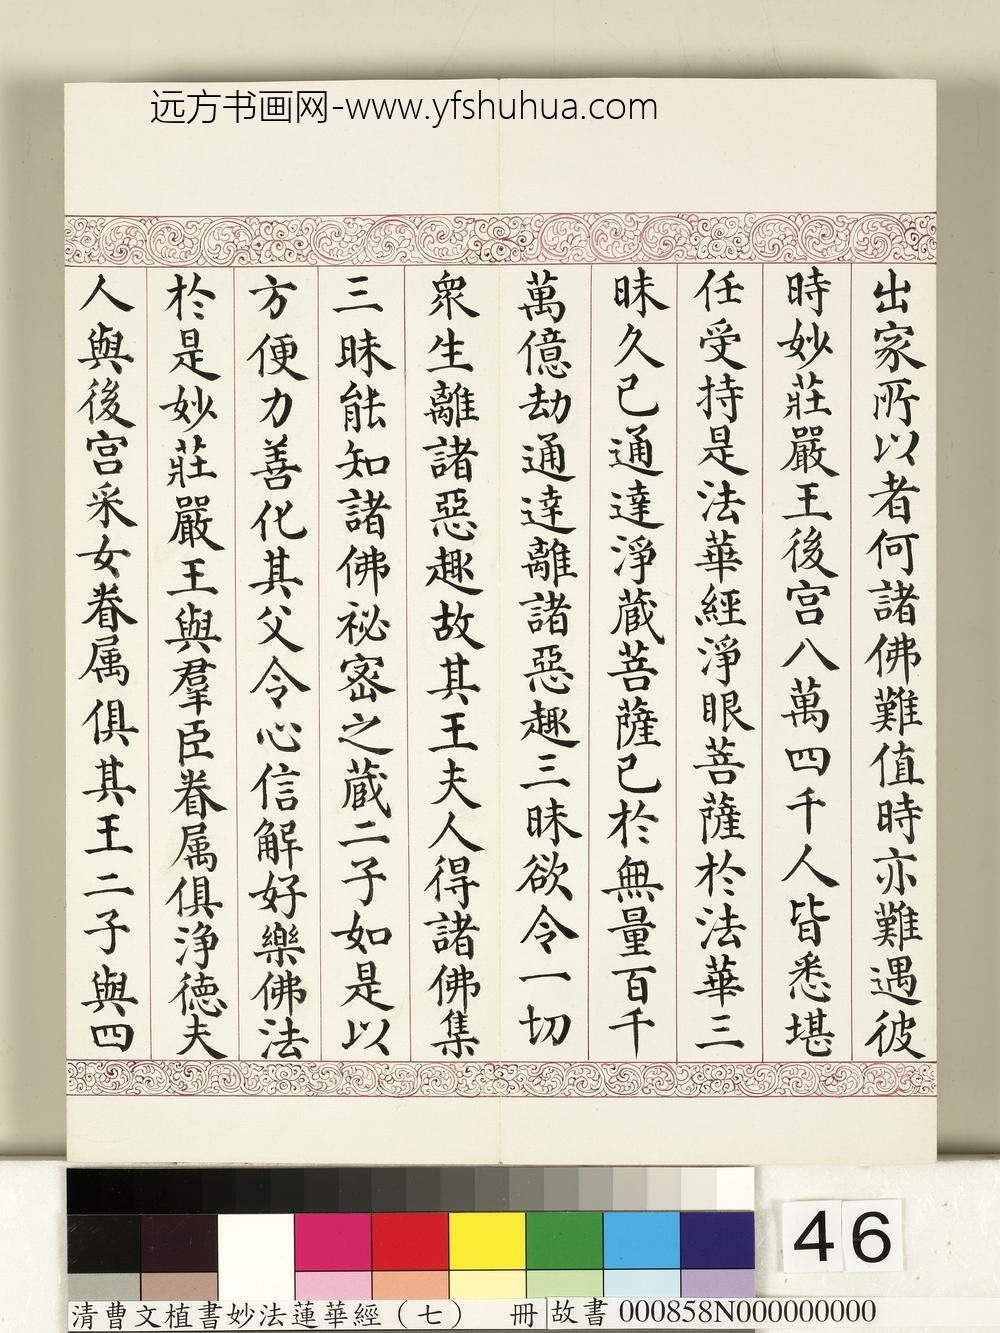 远方书画网-www.yfshuhua.com
出家所以者何諸佛難值時亦難遇彼
時妙莊嚴王後宮八萬四千人皆悉堪
任受持是法華經淨眼菩薩於法華三
昧久已通達淨藏菩薩已於無量百千
萬億劫通達離諸惡趣三昧欲令一切
衆生離諸惡趣故其王夫人得諸佛集
三昧能知諸佛祕密之藏二子如是以
方便力善化其父令心信解好樂佛法
於是妙莊嚴王與羣臣眷属俱淨德夫
人與後宮采女眷属俱其王二子與四
46
清曹文植書妙法蓮華經（七） 冊 故書 000858N000000000